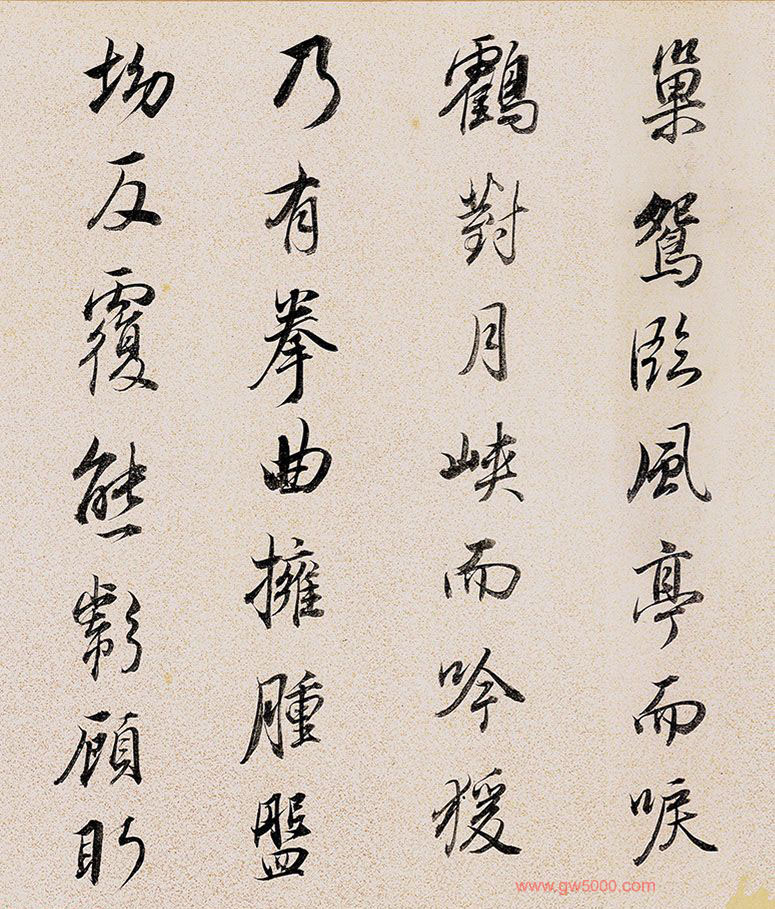 巢鴛臨風亭而唳
鶴對月峽而吟猨
乃有拳曲擁腫盤
坳反覆熊彪顧盼
www.gw5000.com